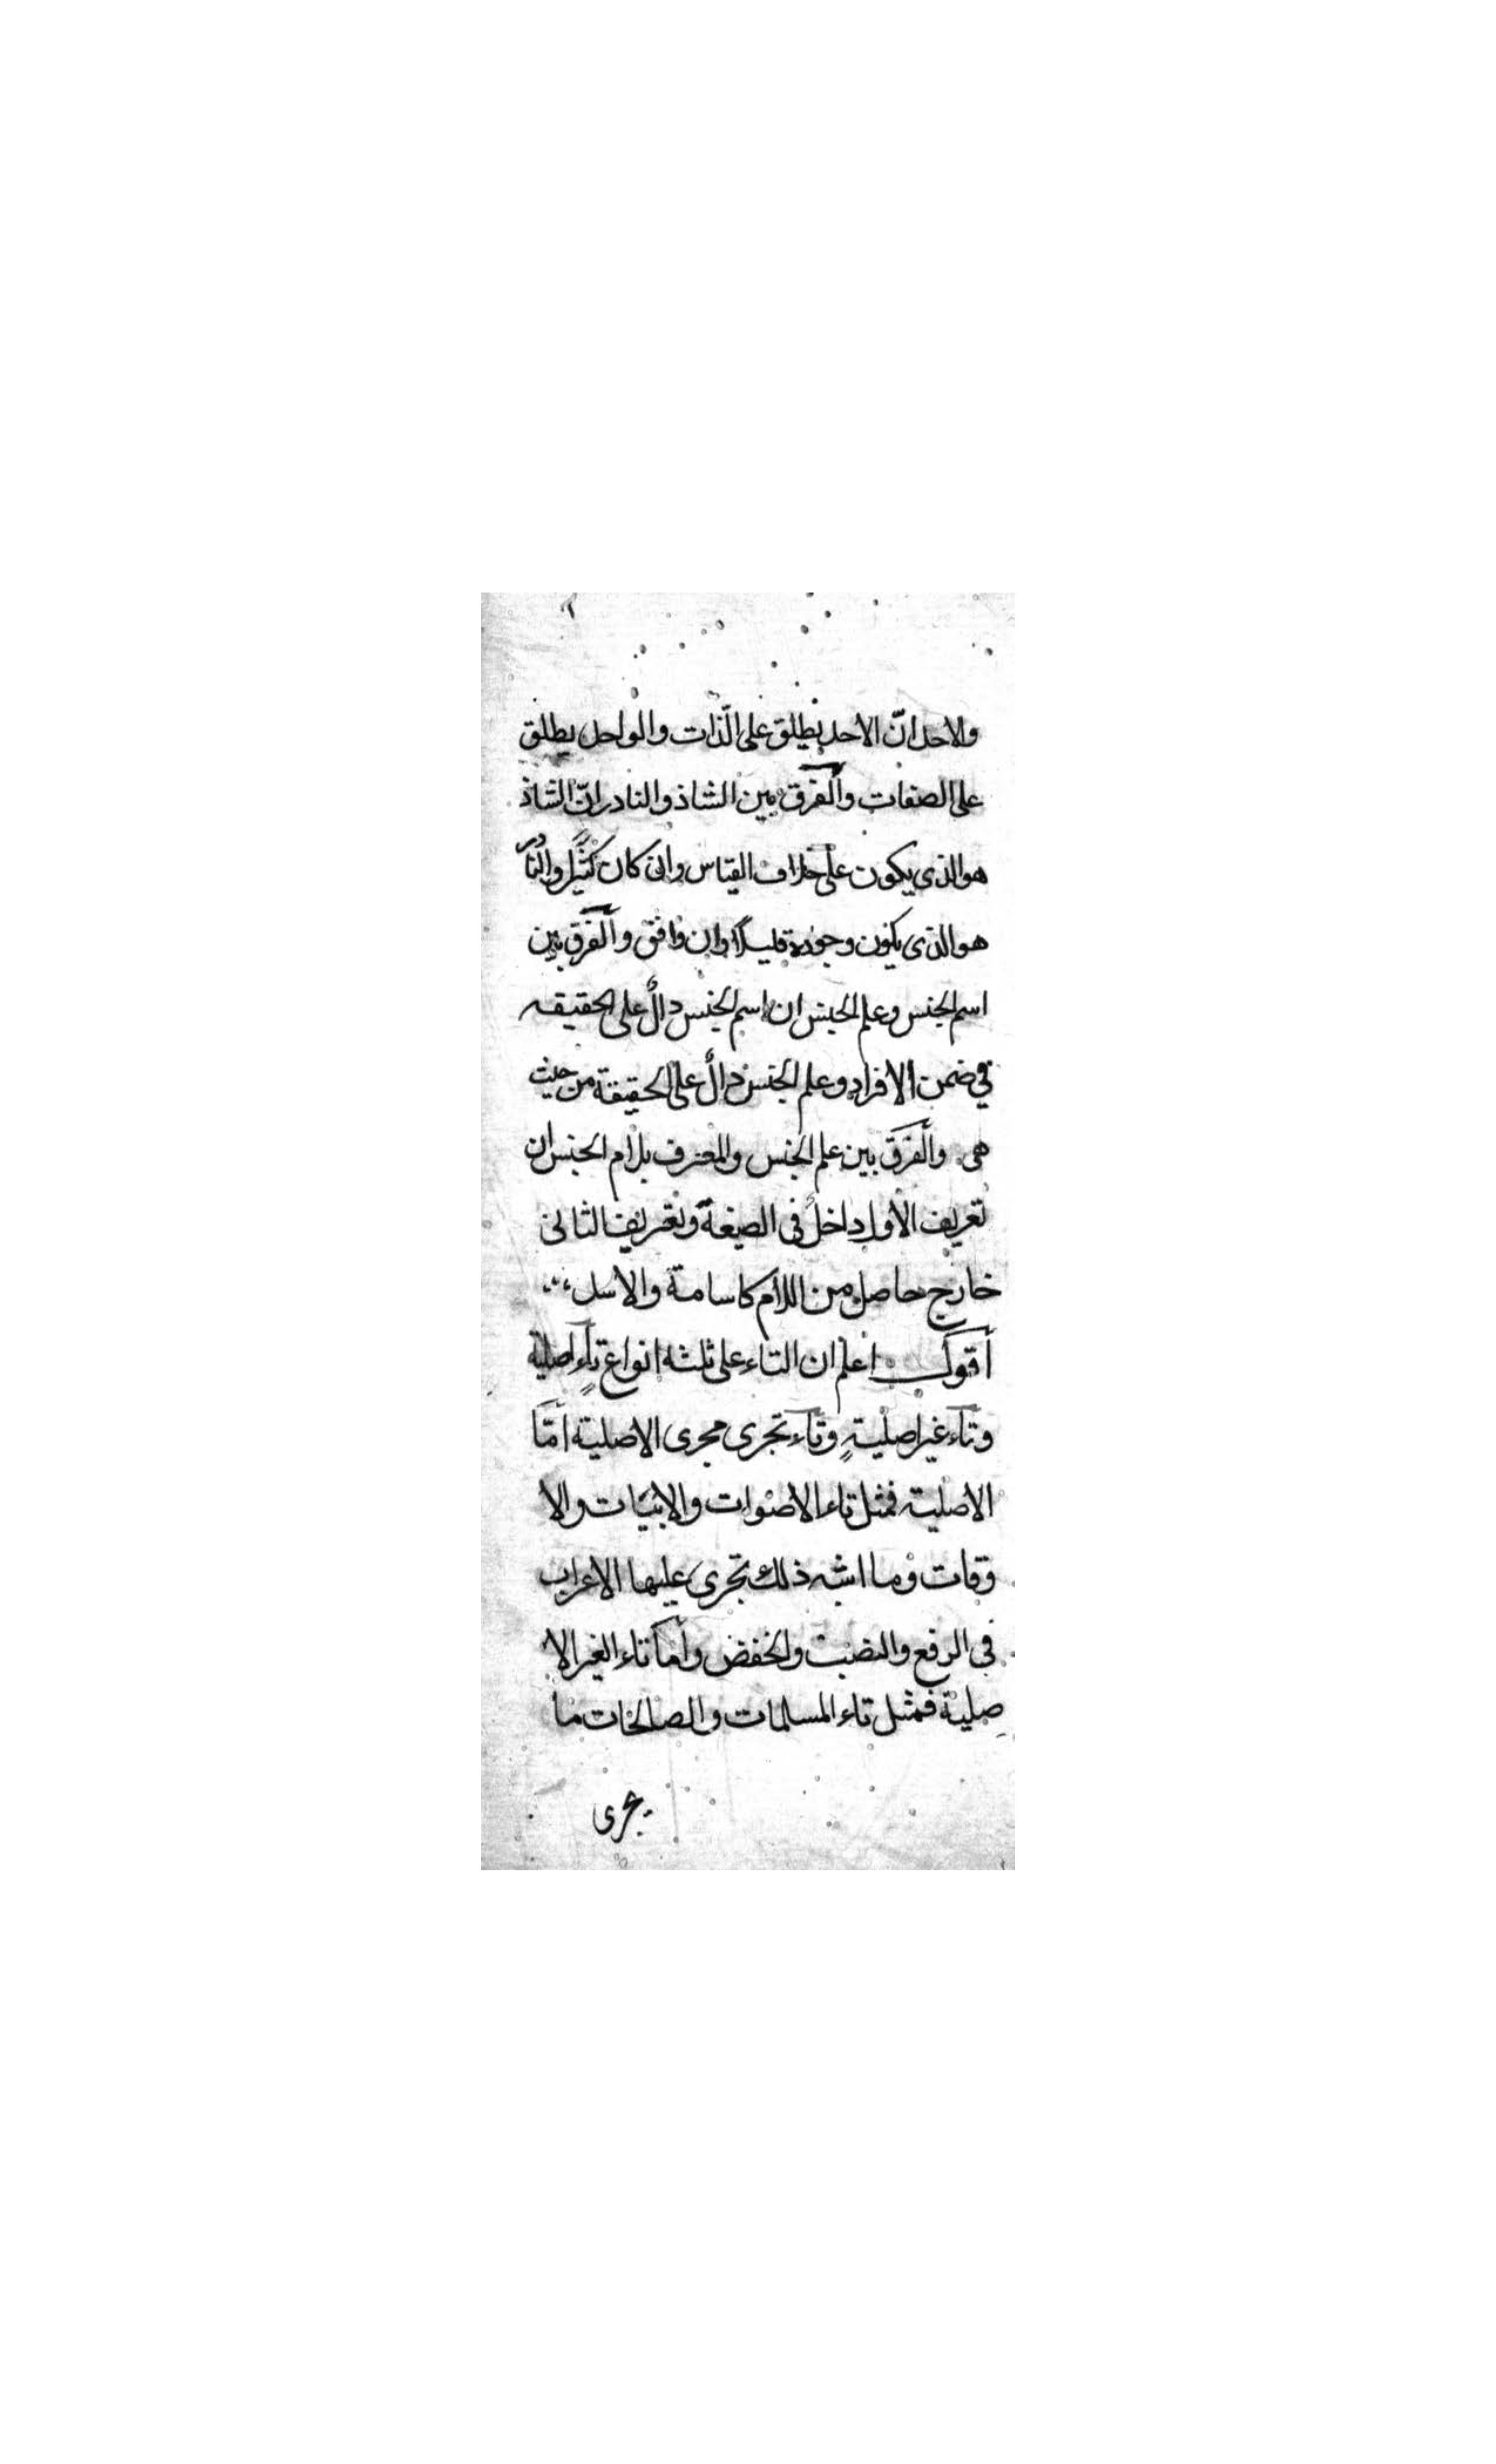 والاحد انّ الاحد يطلق على الذّات والواحد يطلق
على الصفات والفرق بين الشاذ والنادر انّ الشاذ
هو الذى يكون على خلاف القياس وان كان كثيرًا والنادر
هو الذى يكون وجوده قليلًا وان وافق والفرق بين
اسم الجنس وعلم الجنس ان اسم الجنس دالٌ على الحقيقه
في ضمن الافراد وعلم الجنس دالٌ على الحقيقة من حيث
هى والفرق بين علم الجنس والمعرف بلام الجنس ان
تعريف الاول داخل فى الصيغة وتعريف الثانى
خارج حاصل من اللام كاسامة والاسد
أقول اعلم ان التاء على ثلثه انواع تاءٍ اصلية
وتاء غير اصليةٍ وتاء تجرى مجرى الاصلية امّا
الاصلية فمثل تاء الاصوات والابيات والا
وقات وما اشبه ذلك تجرى عليها الاعراب
فى الرفع والنصب والخفض وأما تاء الغير الا
صلية فمثل تاء المسلمات والصالحات ما
يجرى